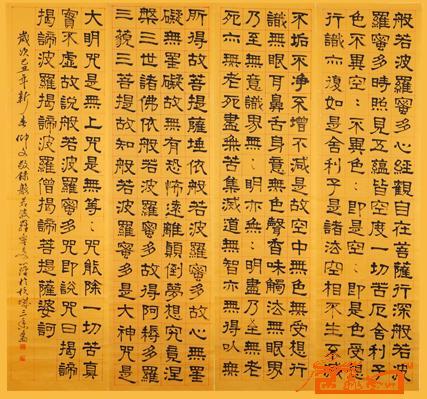 般若波羅蜜多心經觀自在菩薩行深般若波
羅蜜多時照見五蘊皆空度一切苦厄舍利子
色不異空〻不異色〻即是空〻即是色受想
行識亦復如是舍利子是諸法空相不生不滅
不垢不净不增不減是故空中無色無受想行
識無眼耳鼻舌身意無色聲香味觸法無眼界
乃至無意識界無〻明亦無〻明盡乃至無老
死亦無老死盡無苦集滅道無智亦無得以無
所得故菩提薩埵依般若波羅蜜多故心無罣
礙無罣礙故無有恐怖遠離顛倒夢想究竟涅
槃三世諸佛依般若波羅蜜多故得阿耨多羅
三藐三菩提故知般若波羅蜜多是大神咒是
大明咒是無上咒是無等〻咒能除一切苦真
實不虛故說般若波羅蜜多咒即說咒曰揭諦
揭諦波羅揭諦波羅僧揭諦菩提薩婆訶
歲次己丑年新春敬錄般若波羅蜜多